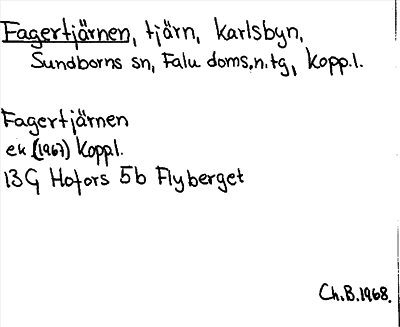 Fagertjärnen, tjärn, Karlsbyn,
Sundborns sn, Falu doms.n.tg, Kopp.l.
Fagertjärnen
ek (1967) Koppl.
13G Hofors 5b Flyberget
Ch.B.1968.